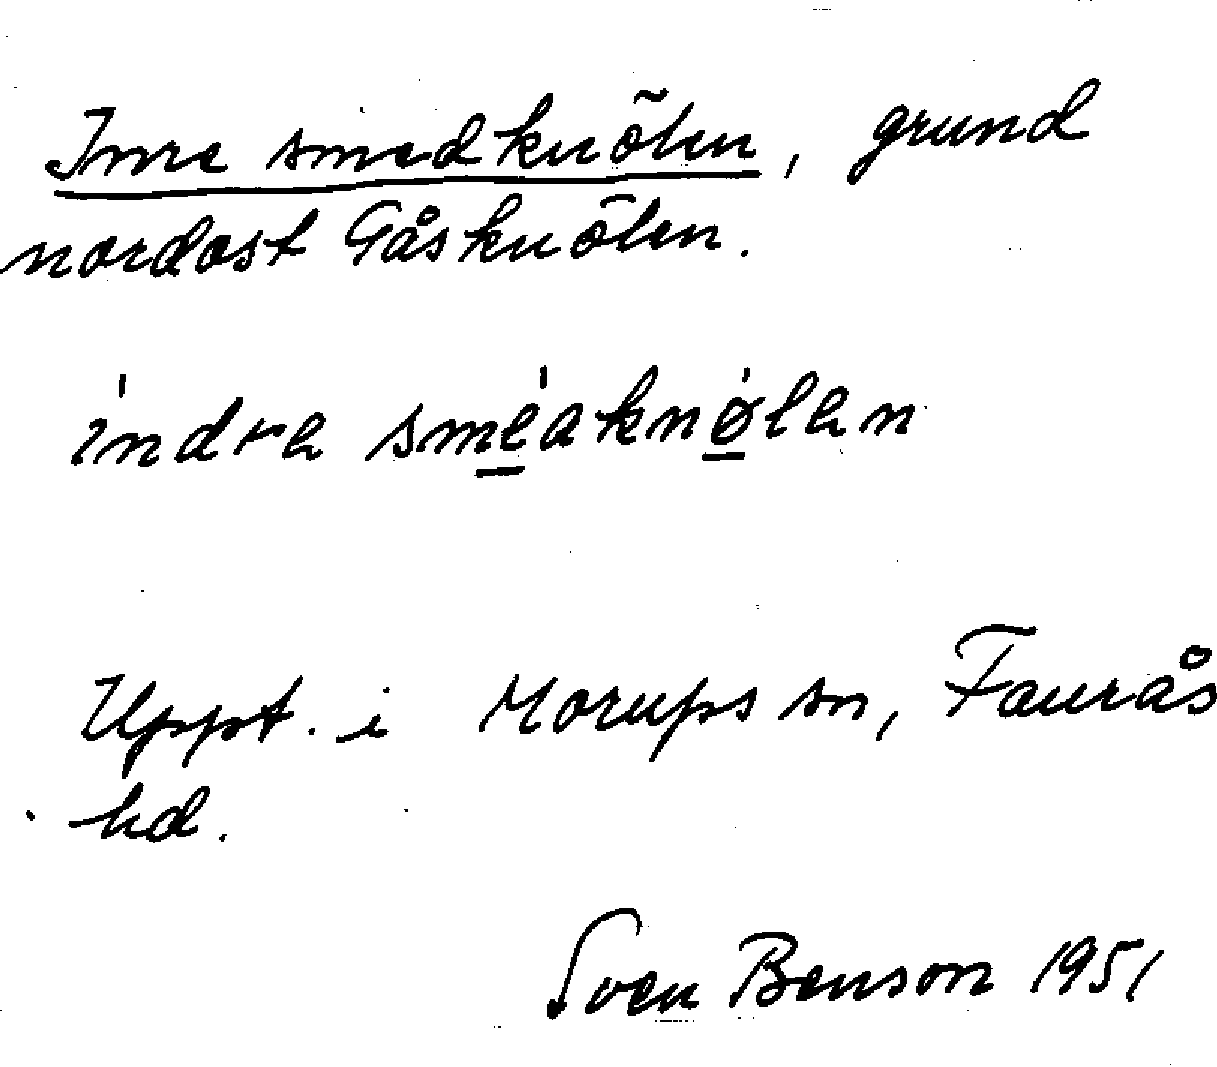 Inre smedknölen, grund
nordost Gåsknölen.
indra sméaknø̱len
Uppt. i Morups sn, Faurås
hd.
Sven Benson 1951